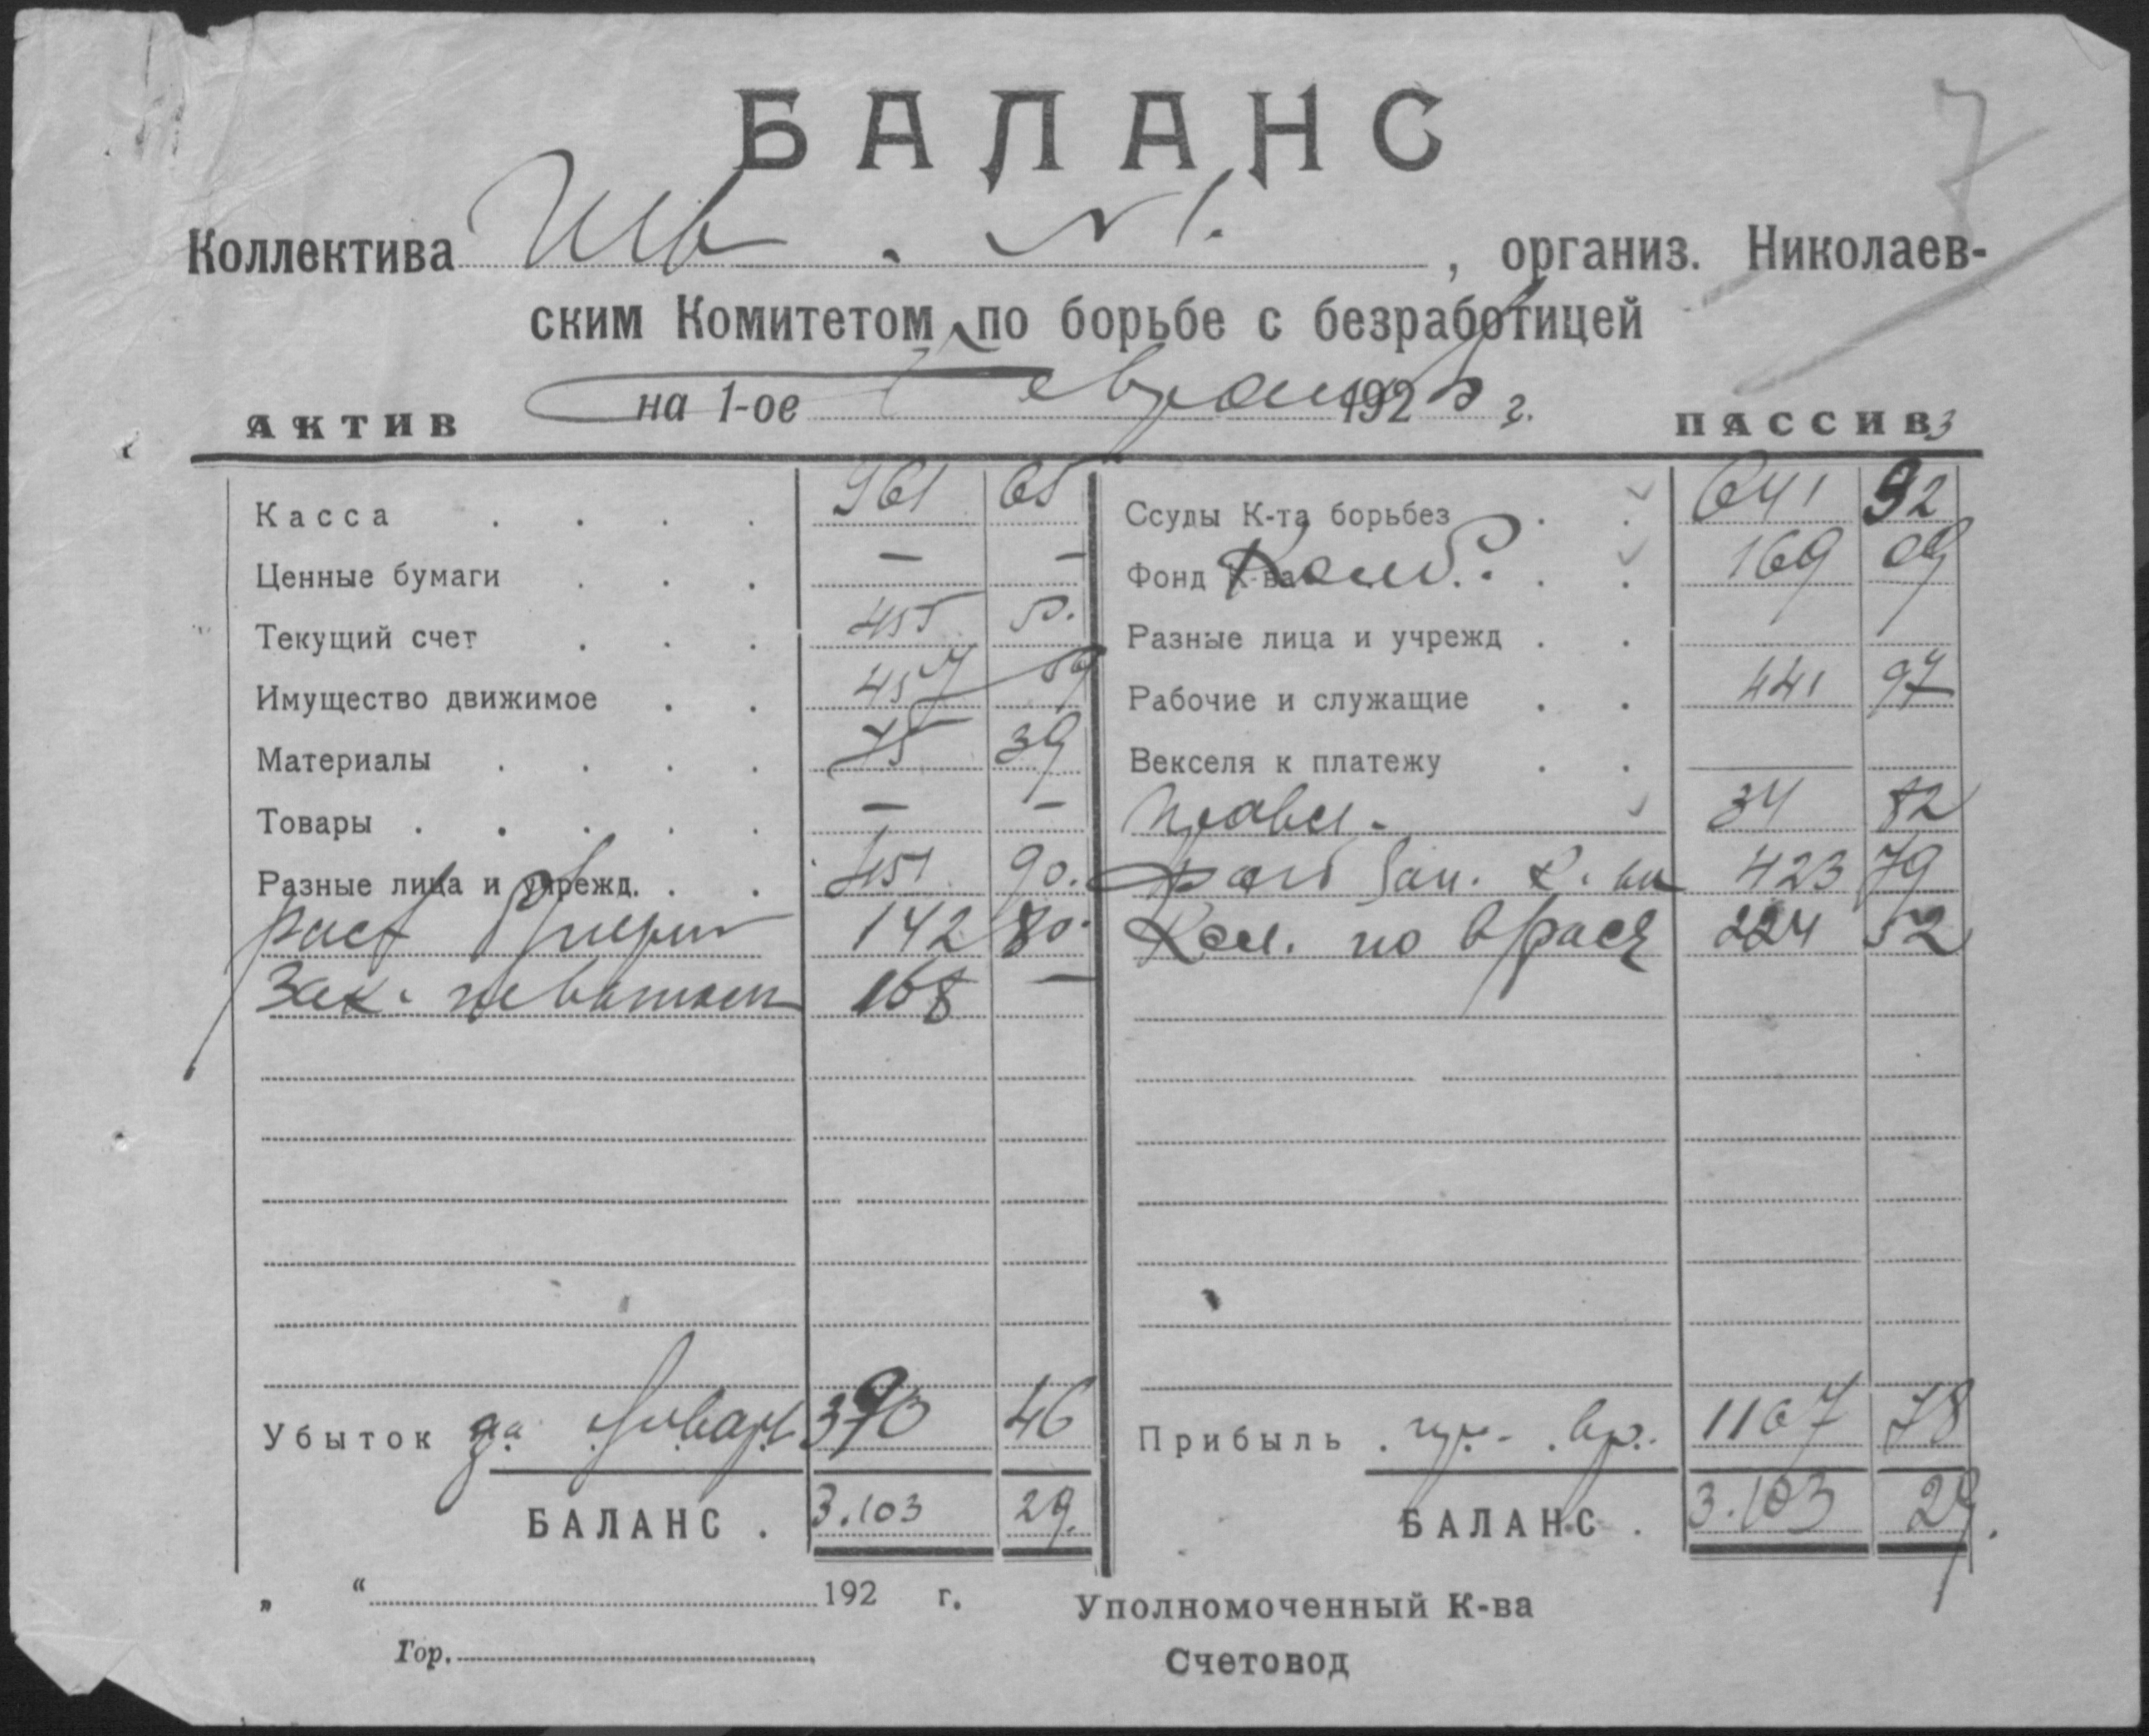 7
БАЛАНС
Коллектива Шв. №1. , организ. Николаев-
ским Комитетом по борьбе с безработицей
на 1-ое Февраля 192 г.
АКТИВ ПАССИВ
Касса 961 65 Ссуды К-та борьбез 641 92
Ценные бумаги — — Фонд К-ва 169 09
Текущий счет 455 50. Разные лица и учрежд
Имущество движимое 457 59 Рабочие и служащие 441 97
Материалы 75 39 Векселя к платежу —
Товары — — 34 82
Разные лица и учрежд. 451 90. К. ва 423 79
142 80. Ком. по 224 52
Зак. 168 —
Убыток 390 46 Прибыль 1167 78
БАЛАНС . 3.103 29. БАЛАНС . 3.103 29.
„ “ 192 г. Уполномоченный К-ва
Гор. Счетовод